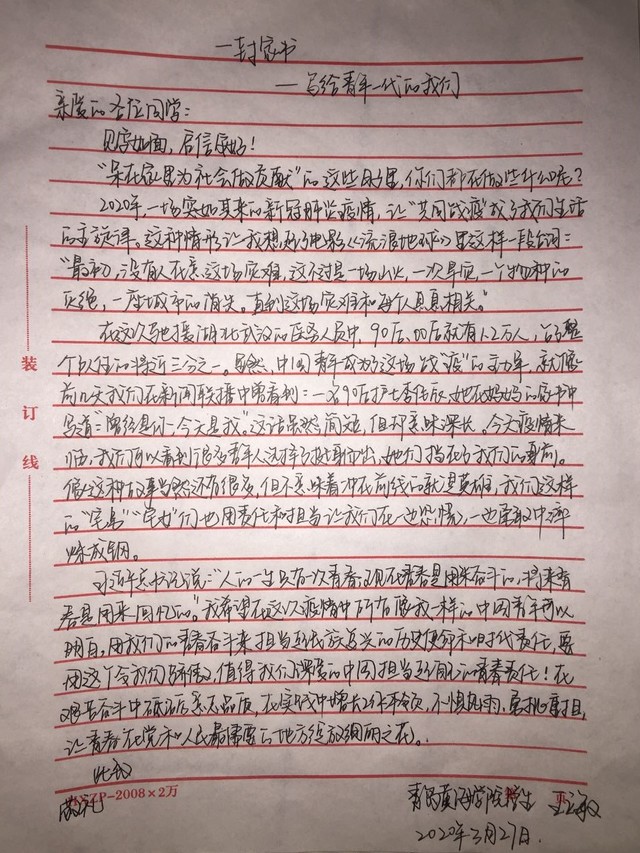 一封家书
——写给青年一代的我们
亲爱的各位同学：
见字如面，启信展好！
“呆在家里为社会做贡献”的这些日子里，你们都在做些什么呢？
2020年，一场突如其来的新冠肺炎疫情，让“共同战疫”成了我们生活
的主旋律。这种情形让我想到了电影《流浪地球》里这样一段台词：
“最初，没有人在意这场灾难，这不过是一场山火，一次旱灾，一个物种的
灭绝，一座城市的消失。直到这场灾难和每个人息息相关。”
在这次驰援湖北武汉的医务人员中，90后、00后就有1.2万人，占了整
个队伍的将近三分之一。显然，中国青年成为了这场战“疫”的主力军，就像
前几天我们在新闻联播中曾看到：一名90后护士李佳辰，她在妈妈的家书中
写道：“曾经是你，今天是我”。这话虽然简短，但却意味深长。今天疫情来
临，我们可以看到很多青年人选择了挺身而出，她们挡在了我们的身前。
像这种故事当然还有很多，但不意味着冲在前线的就是英雄，我们这样
的“宅男”“宅女”们也用责任和担当让我们在一边，一边中淬
炼成钢。
习近平总书记说：“人的一生只有一次青春。现在青春是用来奋斗的，将来青
春是用来回忆的。”我希望在这次疫情中所有像我一样的中国青年可以
明白，用我们的青春奋斗来担当起民族复兴的历史使命和时代责任，要
用这个令我们骄傲，值得我们深爱的中国担当起自己的青春责任！在
艰苦奋斗中砥砺意志品质，在实践中增长工作本领，不惧风雨，勇挑重担，
让青春在党和人民最需要的地方绽放绚丽之花。
此致
敬礼
青岛黄海学院学生 王敏
2020年3月27日.
装
订
线
ZP-2008×2万